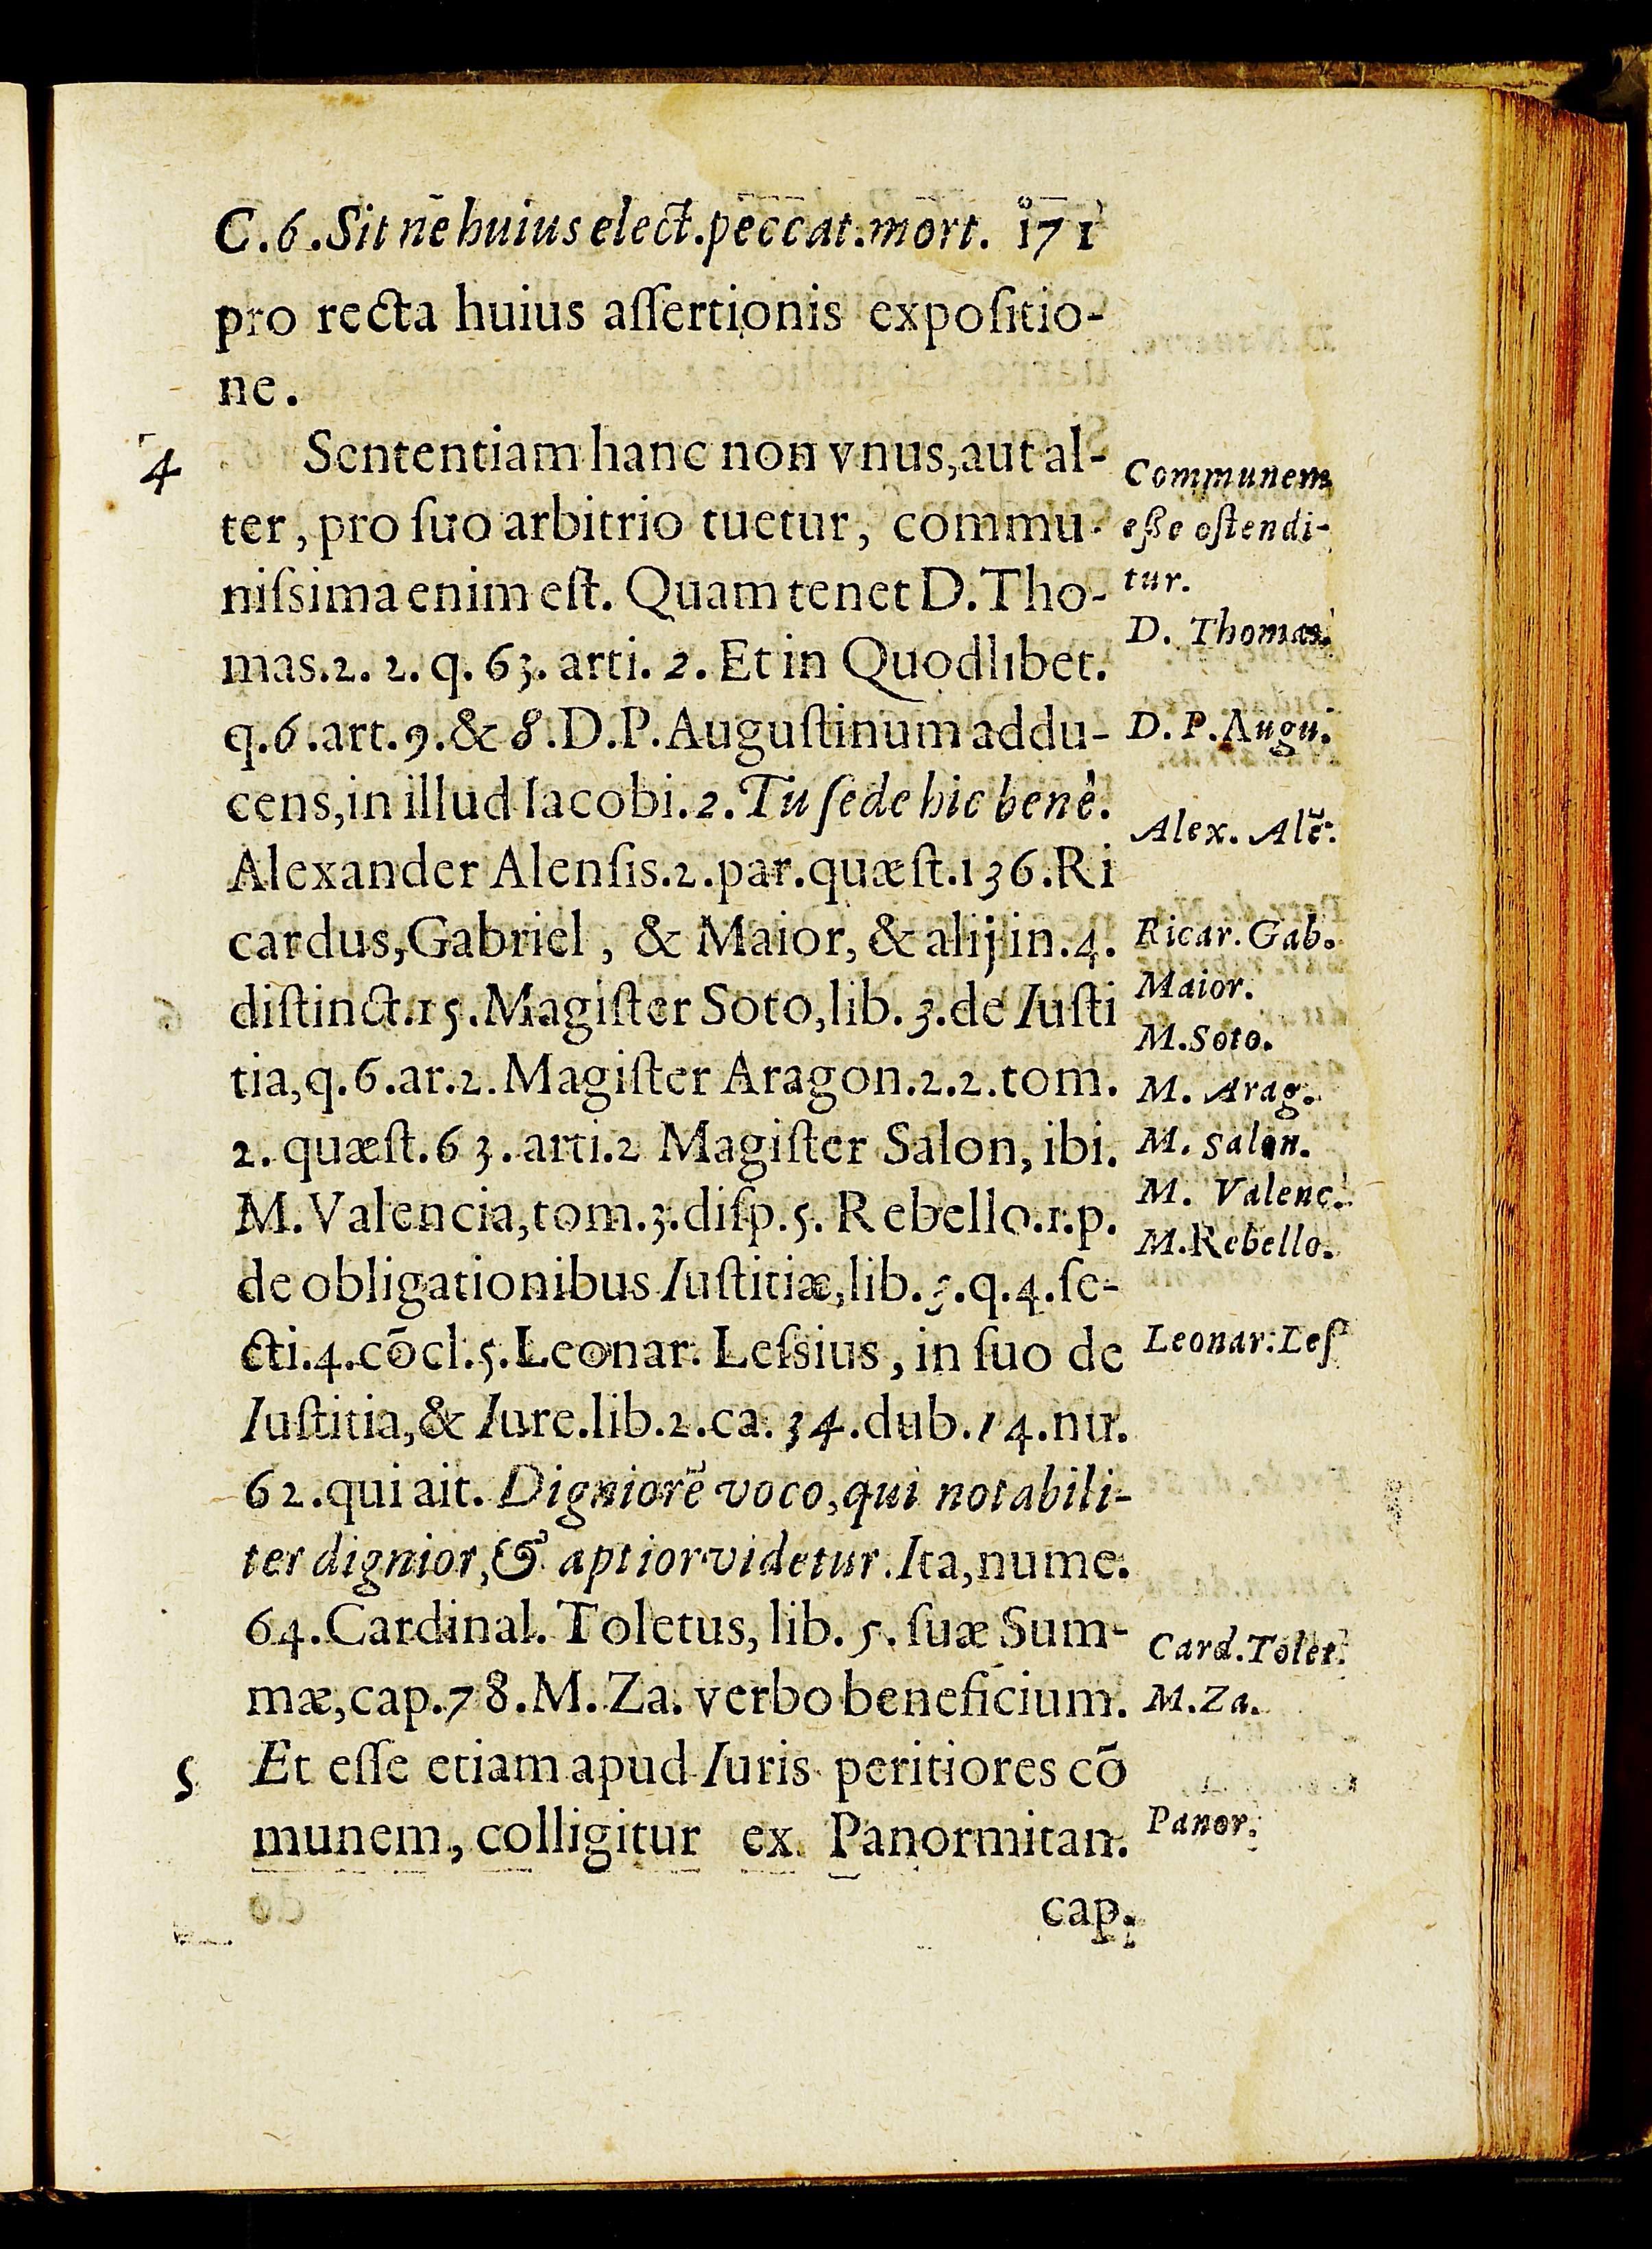 C.6.Sit nē huius elect.peccat.mort. 171
pro recta huius aſſertionis expoſitio-
ne.
4 Sententiam hanc non vnus,aut al-
ter, pro ſuo arbitrio tuetur, commu-
niſsima enim eſt. Quam tenet D.Tho-
mas.2. 2. q. 63. arti. 2. Et in Quodlibet.
q.6.art.9.& 8.D.P.Auguſtinum addu-
cens,in illud Iacobi.2.Tu ſede hic benè.
Alexander Alenſis.2.par.quæſt.136.Ri
cardus,Gabriel, & Maior, & alij in.4.
diſtinct.15.Magiſter Soto,lib.3.de Iuſti
tia,q.6.ar.2.Magiſter Aragon.2.2.tom.
2. quæſt.63.arti.2 Magiſter Salon, ibi.
M.Valencia,tom.3.diſp.5. Rebello.1.p.
de obligationibus Iuſtitiæ,lib.3.q.4.ſe-
cti.4.cōcl.5.Leonar. Leſsius, in ſuo de
Iuſtitia,& Iure.lib.2.ca.34.dub.14.nu.
62.qui ait. Digniorē voco,qui notabili-
ter dignior,& aptior videtur.Ita,nume.
64.Cardinal. Toletus, lib. 5. ſuæ Sum-
mæ,cap.78.M. Za. verbo beneficium.
5 Et eſſe etiam apud Iuris peritiores cō
munem, colligitur ex Panormitan.
cap.
Communem
eße oſtendi-
tur.
D. Thomas.
D.P.Augu.
Alex. Alē.
Ricar.Gab.
Maior.
M.Soto.
M. Arag.
M. Salon.
M. Valenc.
M.Rebello.
Leonar.Leſ
Card.Tolet.
M.Za.
Panor.